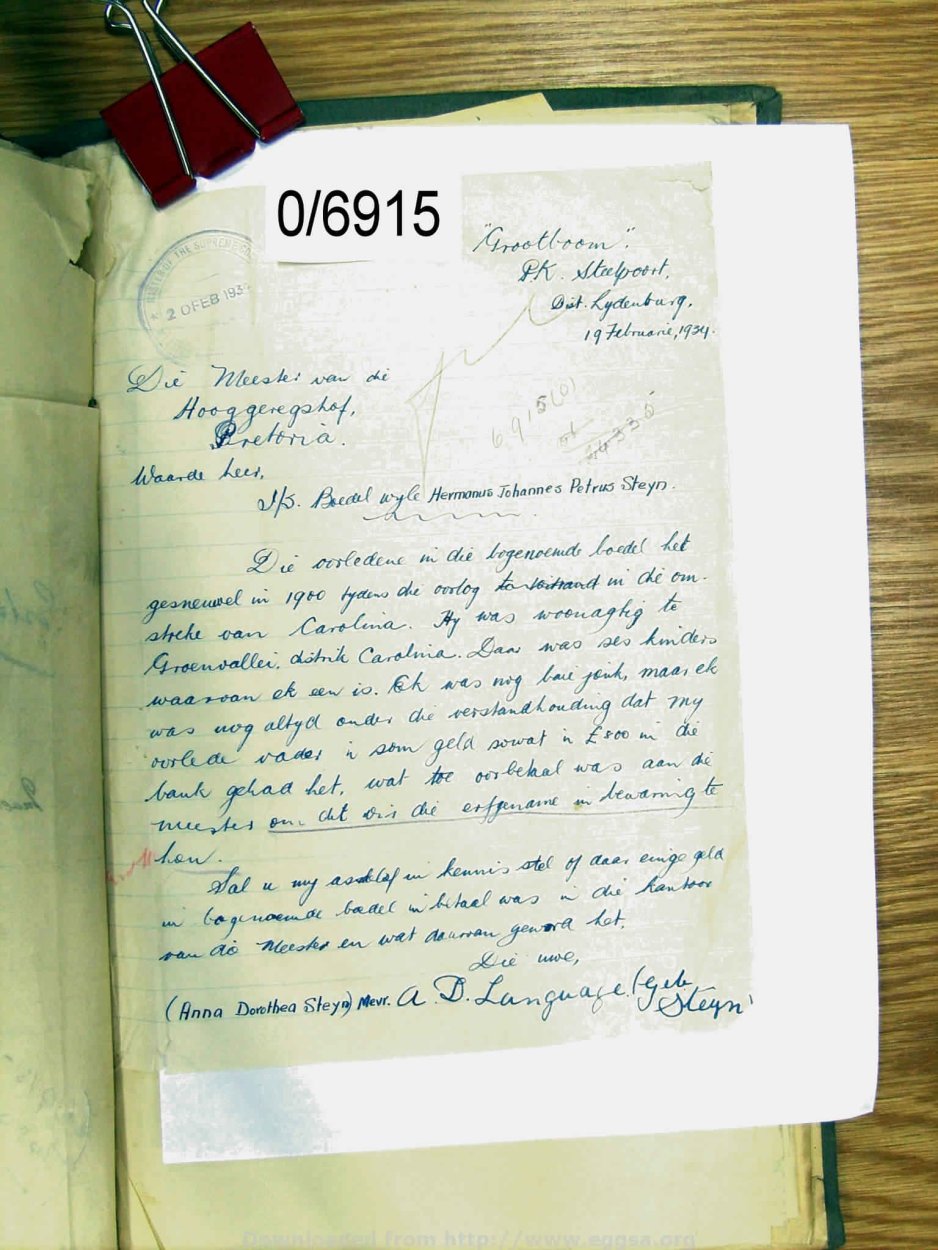 0/6915
"Grootboom".
P.K. Steelpoort,
Dist. Lydenburg,
19 Februarie, 1934.
MASTER OF THE SUPREME
20 FEB 193
Die Meester van die
Hooggeregshof,
Pretoria.
6915(0)
Waarde Heer,
I/S. Boedel wyle Hermanus Johannes Petrus Steyn.
Die oorledene in die bogenoemde boedel het
gesneuwel in 1900 tydens die oorlog in die om-
streke van Carolina. Hy was woonagtig te
Groenvallei, distrik Carolina. Daar was ses kinders
waarvan ek een is. Ek was nog baie jonk, maar ek
was nog altyd onder die verstandhouding dat my
oorlede vader 'n som geld sowat 'n £800 in die
bank gehad het, wat toe oorbetaal was aan die
meester om dit vir die erfgename in bewaring te
hou.
Sal u my asseblief in kennis stel of daar enige geld
in bogenoemde boedel in betaal was in die kantoor
van die Meester en wat daarvan geword het.
Die uwe,
(Anna Dorothea Steyn) Mevr. A. D. Language (geb
Steyn)
Downloaded from http://www.eggsa.org